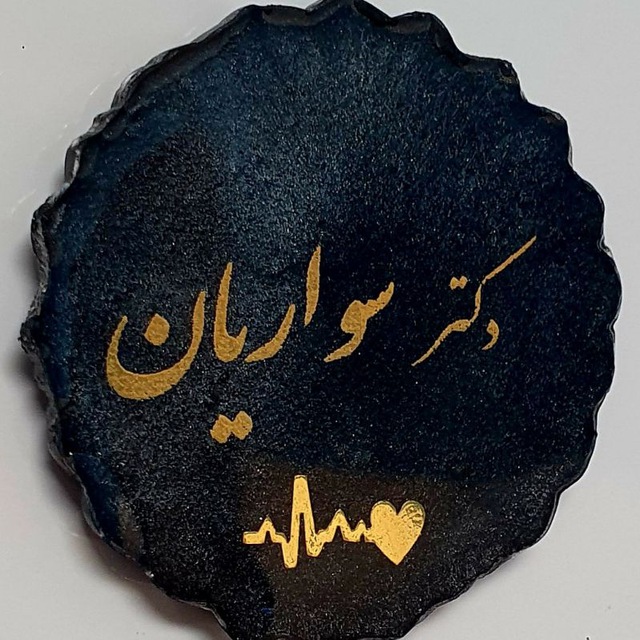 دکتر سواریان